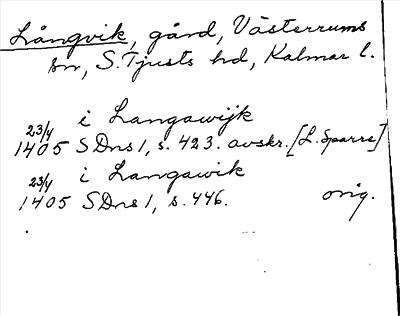 Långvik, gård, Västerrums
sn, S. Tjusts hd, Kalmar l.
i Langawijk
23/4
1405 SDns 1, s. 423. avskr. [L. Sparre]
i Langawik
23/4
1405 SDns 1, s. 446. orig.